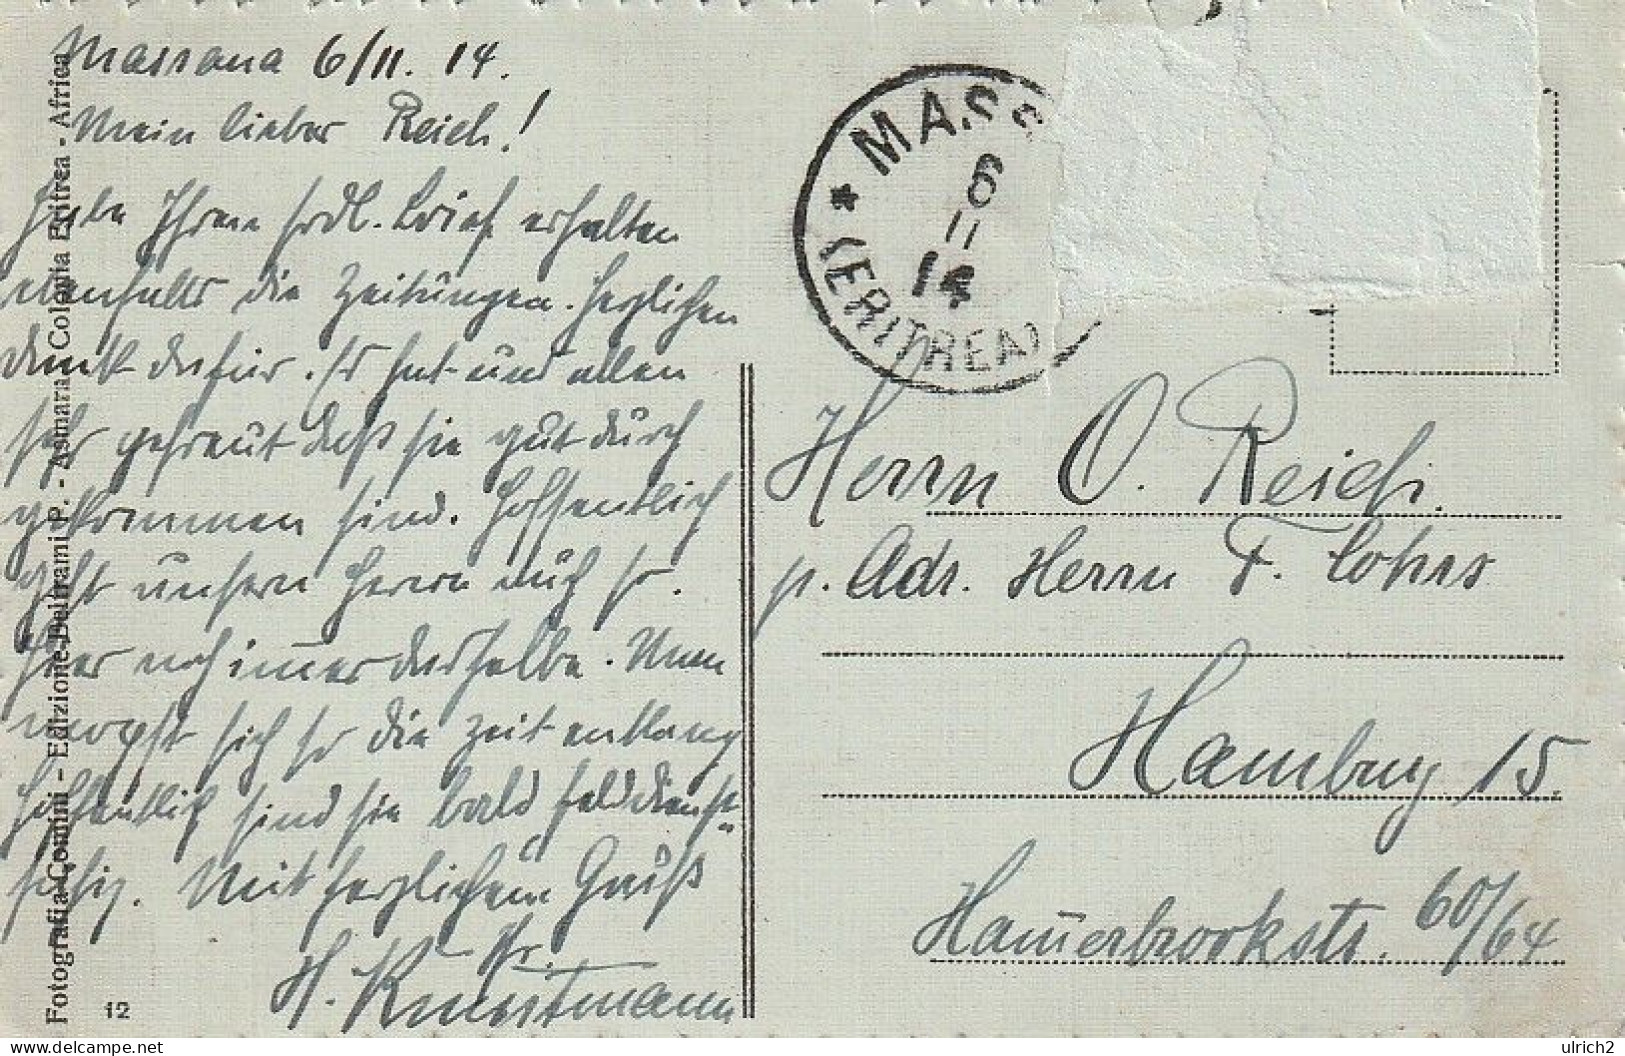 Massaua 6/11. 14.
Mein lieber Reich!
Habe Ihren frdl. Brief erhalten
ebenfalls die Zeitungen. Herzlichen
Dank dafür. Es hat uns allen
sehr gefreut daß sie gut durch
gekommen sind. Hoffentlich
geht unsern Herrn auch so.
Hier noch immer dasselbe. Man
murkst sich so die Zeit entlang
Hoffentlich sind sie bald felddienst-
fähig. Mit herzlichem Gruß
Ihr
H. Kunstmann
Fotografia Comini - Edizione Beltrami P. - Asmara - Colonia Eritrea - Africa
12
* MASS
6
11
14
(ERITREA)
Herrn O. Reich.
p. Adr. Herrn F. Cohrs
Hamburg 15.
Hammerbrookstr. 60/64
ulrich2
www.delcampe.net